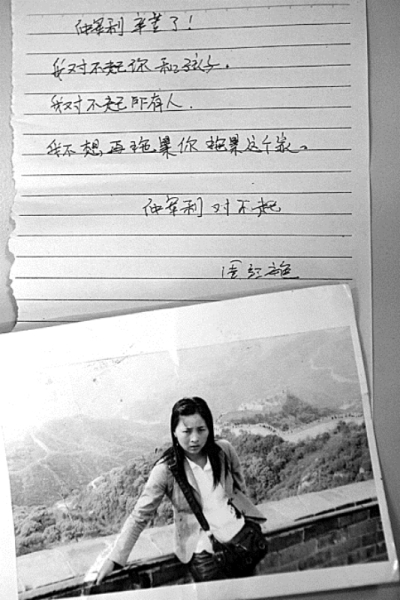 仲军利 辛苦了！
我对不起你和孩子。
我对不起所有人.
我不想再拖累你 拖累这个家。
仲军利 对不起
周红